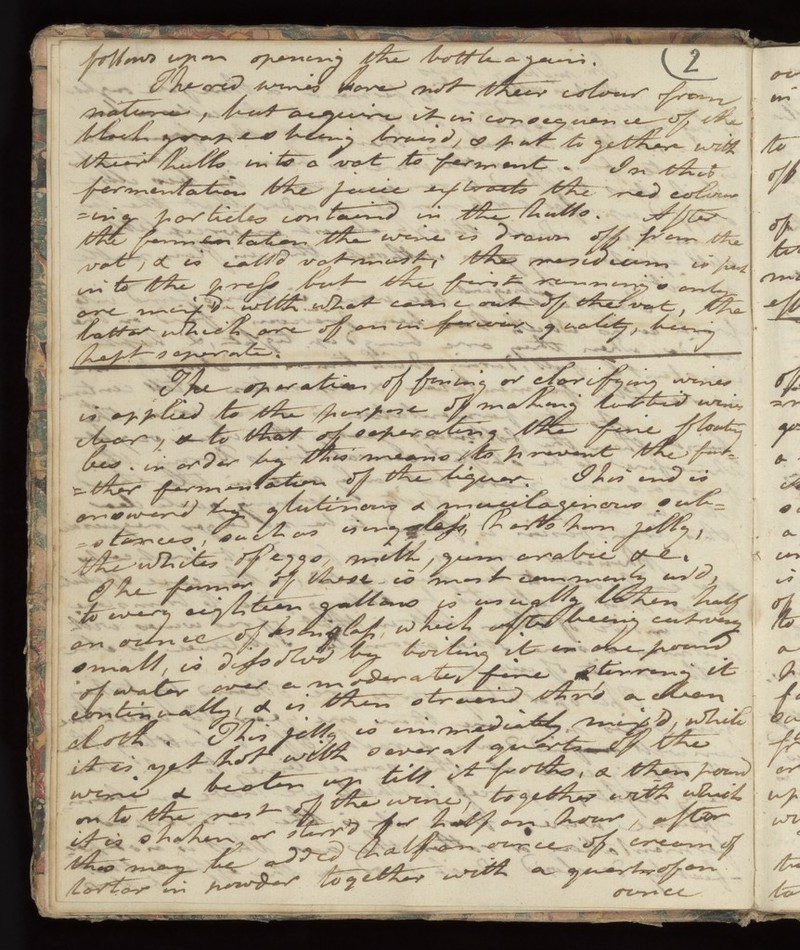 (2
follows upon opening the bottle again.
The red wines have not their colour from
nature, but acquire it in consequence of the
black grapes being bruis'd, & put together with
their hulls into a vat to ferment. In that
fermentation the juice extracts the red colour
=ing particles contain'd in the hulls. After
the fermentation the wine is drawn off from the
vat, & is call'd vat must; the residuum is put
into the press but the first runnings only
are mix'd with what came out of the vat, the
latter which are of an inferior quality, being
kept separate.
The operation of fining or clarifying wines
is applied to the purpose of making turbid wines
clear, & to that of seperating the fine floating
lees. in order by this means to prevent the fur=
=ther fermentation of the liquor. This end is
answered by glutinous & mucilaginous sub=
=stances, such as isinglass, hartshorn jelly,
the whites of eggs, milk, gum arabic &c.
The former of these is most commonly us'd,
to every eighteen gallons is usually taken half
an ounce of isinglass, which after being cut very
small, is dissolv'd by boiling it in one pound
of water over a moderate fire stirring it
continually, & is then strain'd thro' a clean
cloth. This jelly is immediately mix'd, while
it is yet hot with several quarts of the
wine & beaten up till it froths, & then pour'd
on to the rest of the wine, together with which
it is shaken or stirr'd for half an hour, after
this may be added half an ounce of cream of
tartar in powder together with a quarter of an
ounce